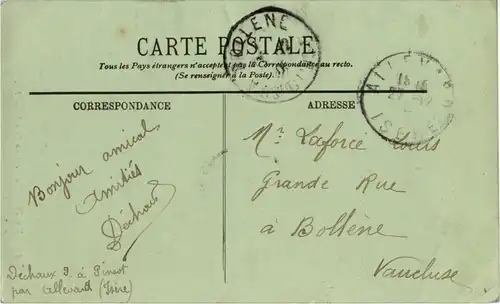 CARTE POSTALE
Tous les Pays étrangers n'acceptent pas la Correspondance au recto.
(Se renseigner à la Poste).
CORRESPONDANCE
ADRESSE
Bonjour amical
Amitiés
Déchaux
Mr Laforce Louis
Grande Rue
à Bollène
Vaucluse
Déchaux J. à Pinsot
par Allevard (Isère)
BOLLENE
ALLEVARD